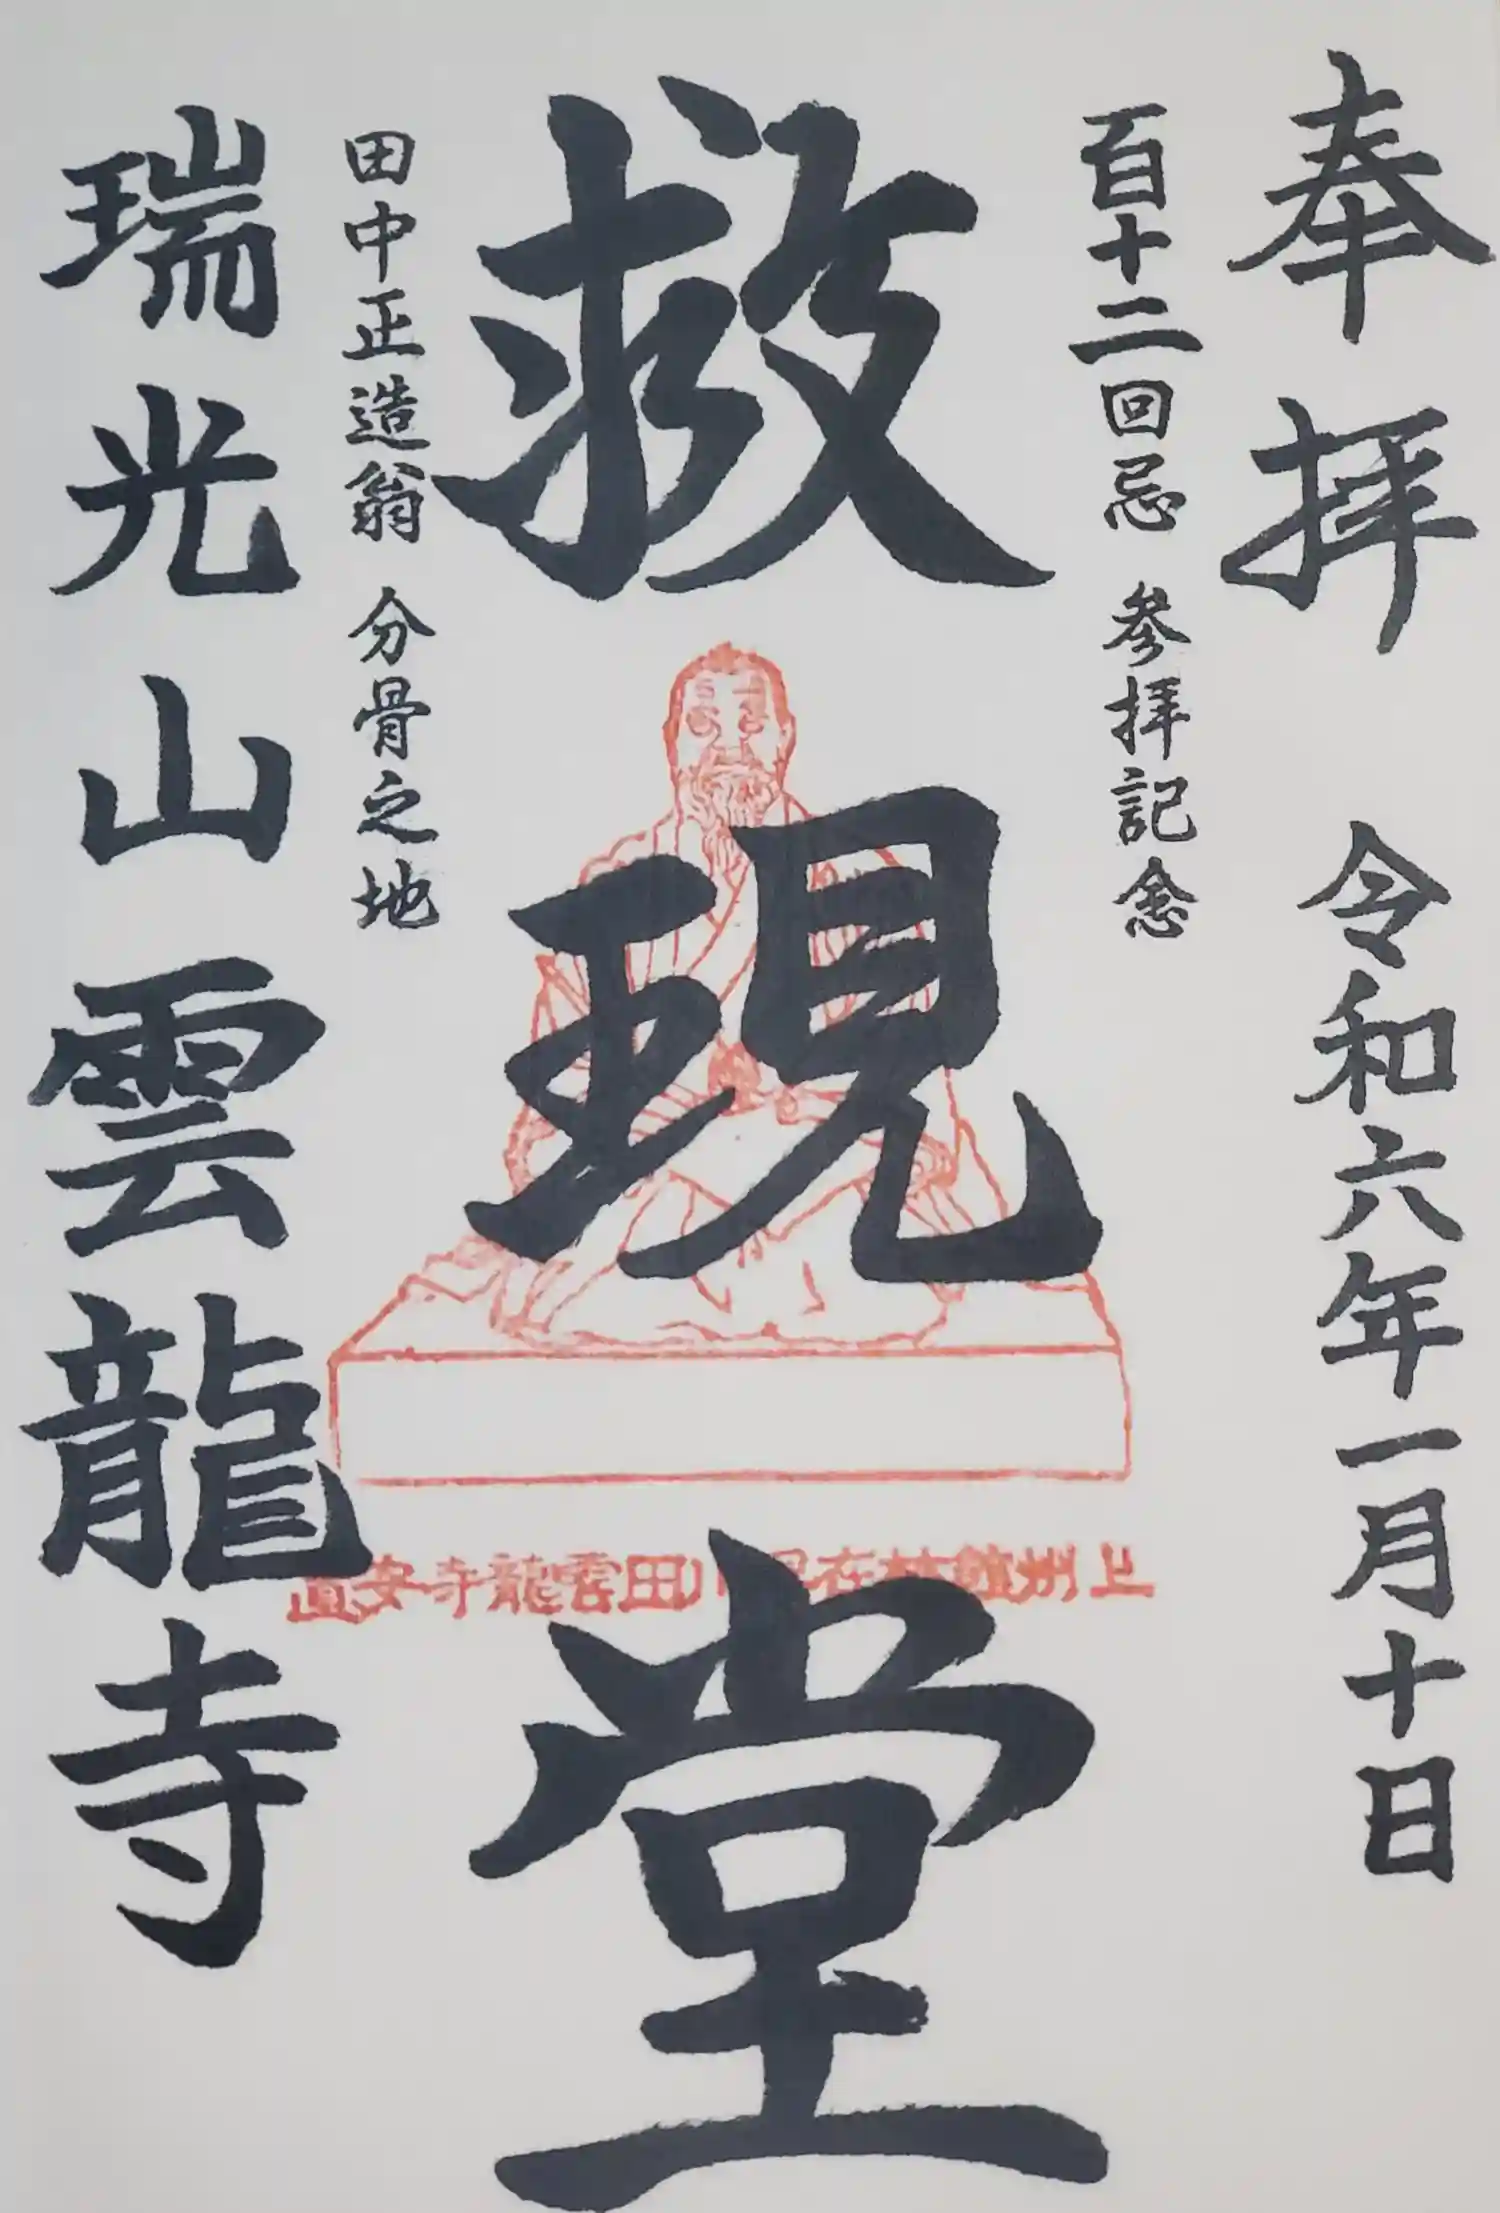 奉拝 令和六年一月十日
百十二回忌 参拝記念
救現堂
上州館林在早川田雲龍寺安置
田中正造翁 分骨之地
瑞光山雲龍寺